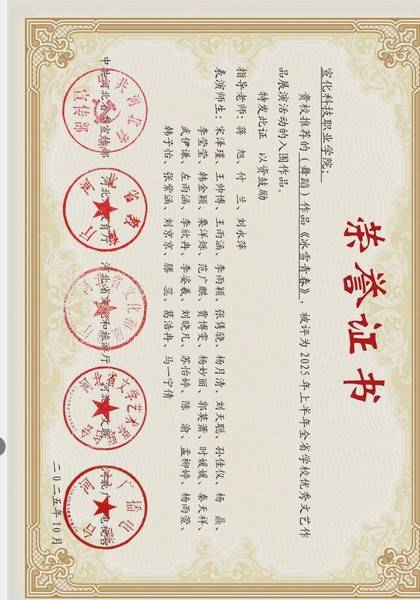 荣誉证书
宣化科技职业学院：
贵校推荐的（舞蹈）作品《冰雪青春》，被评为2025年上半年全省学校优秀文艺作
品展演活动的入围作品。
特发此证 以资鼓励
指导老师：蒋 旭、付 兰、刘永萍
表演师生：宋泽瑾、王帅博、王雨涵、李雨颖、张秀骁、杨月清、刘天聪、孙佳仪、杨 晨、
李莹莹、韩金颖、栗洋烁、范广麒、贾博雯、杨妙丽、郭英萧、时媛媛、秦天祥、
武伊谦、左雨涵、李欣冉、李姿羲、刘晓凡、苏怡婷、陈 渝、孟柳婷、杨雨萱、
韩子怡、张紫涵、刘京京、滕 蕊、葛浩冉、马一宇倩
中共河北省委宣传部 河北省教育厅 河北省文化和旅游厅 河北省文联 河北广播电视台
二〇二五年10月